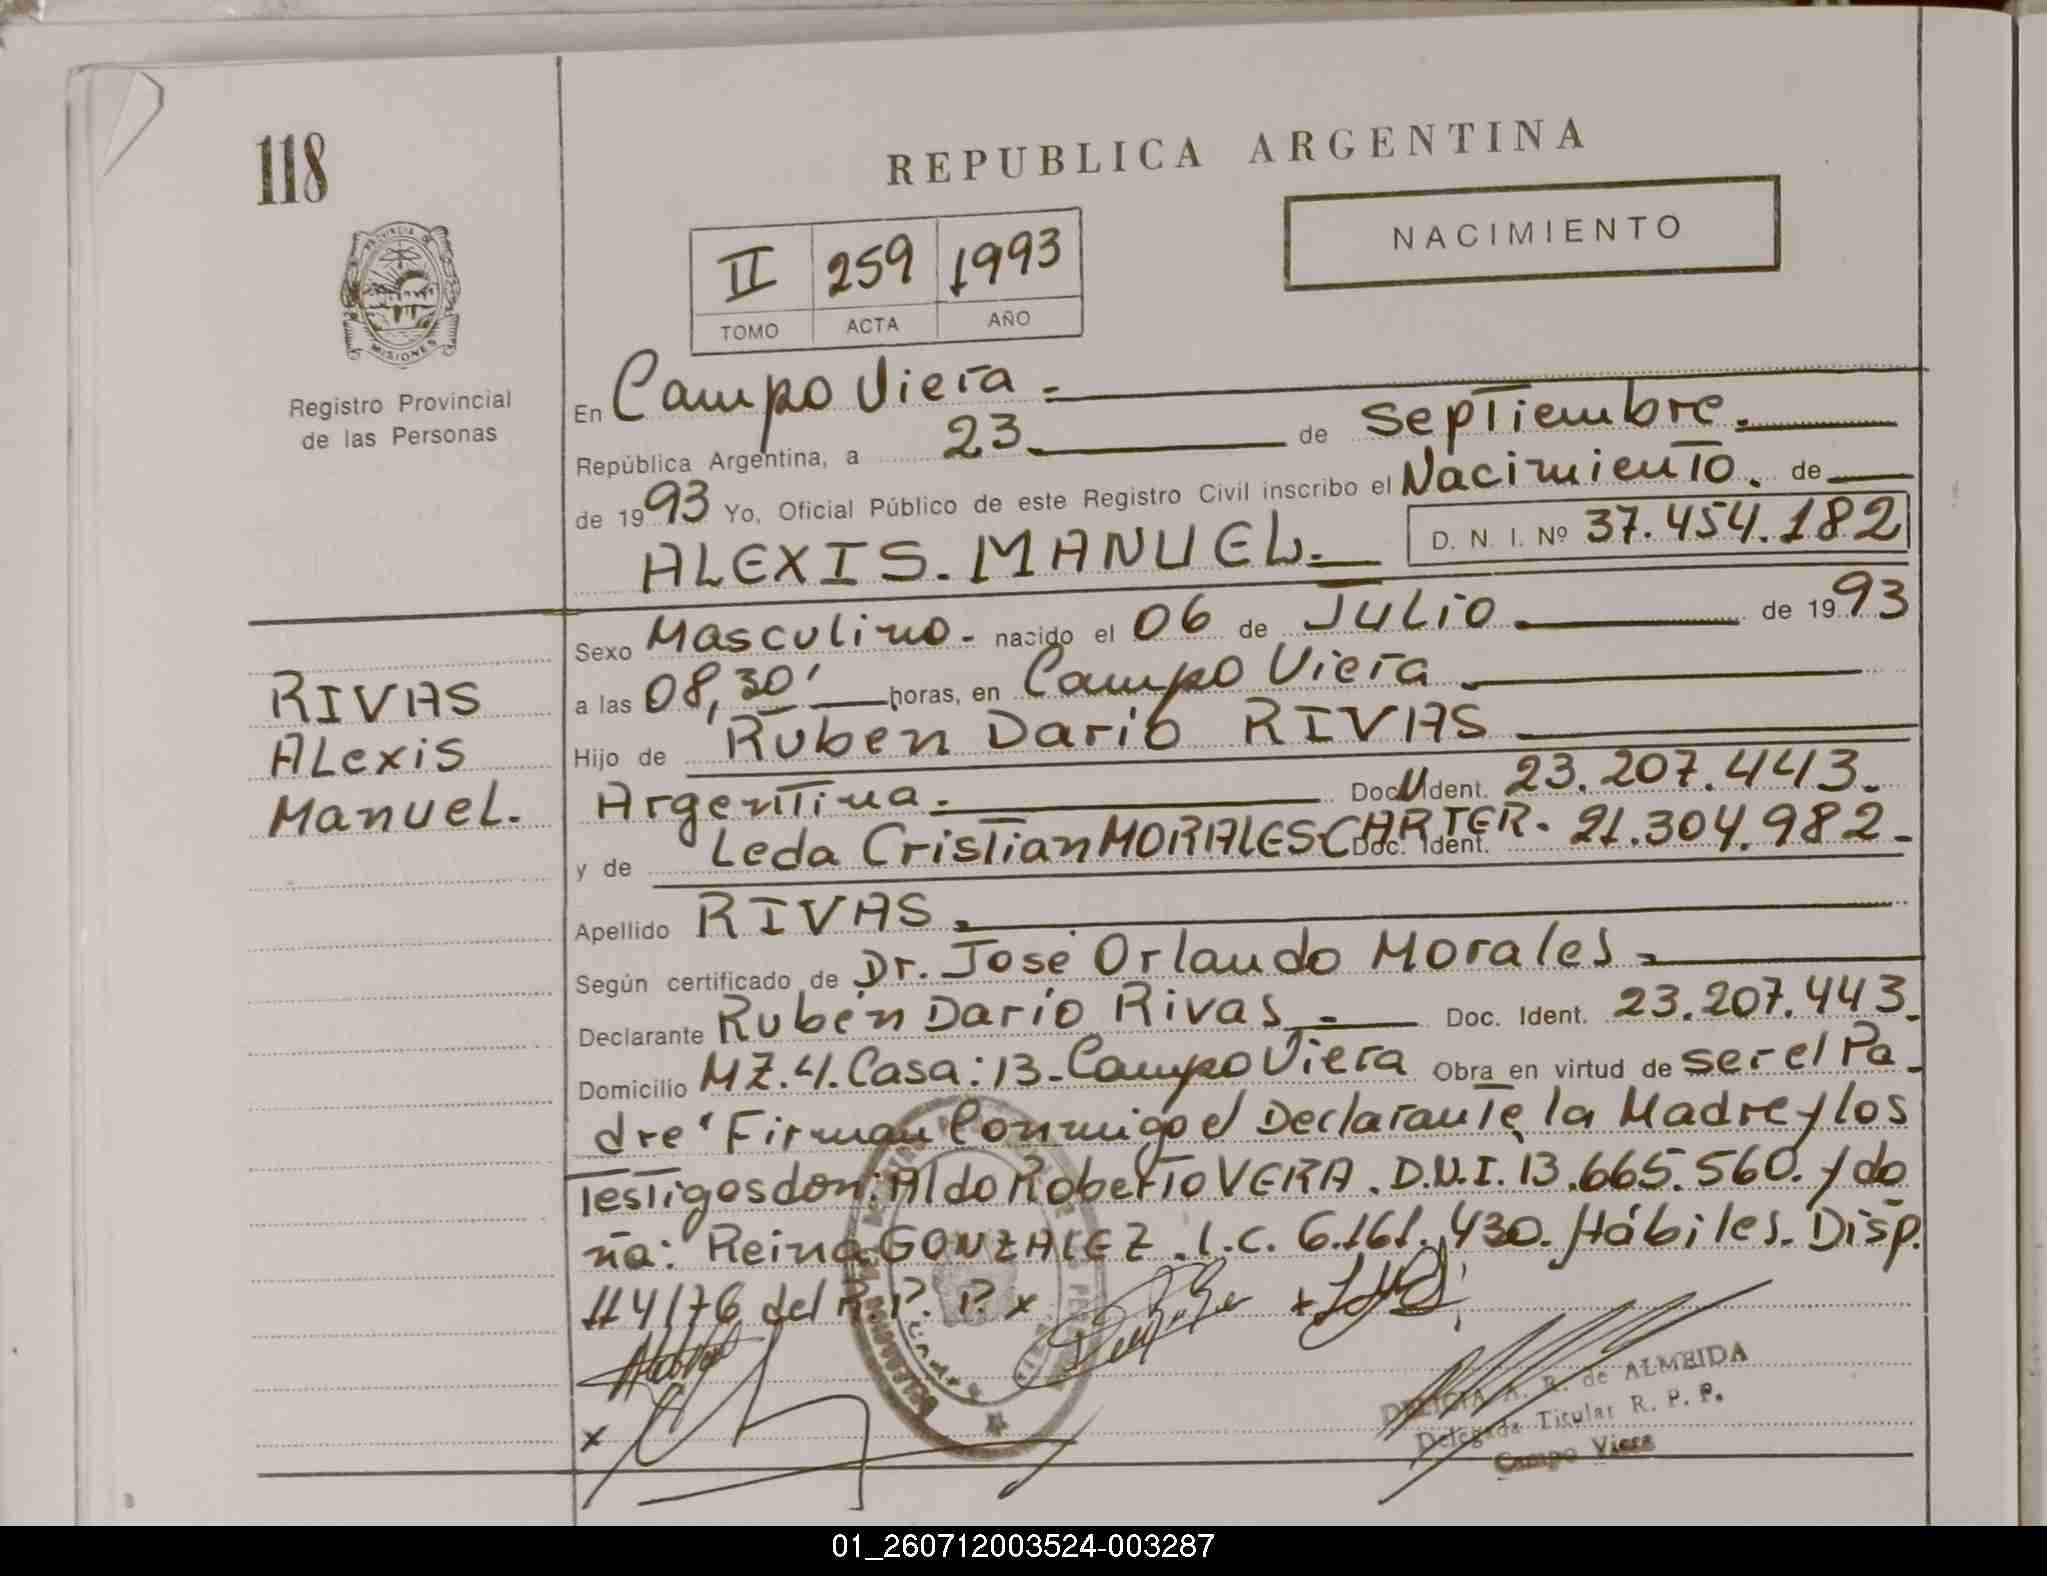 118
REPUBLICA ARGENTINA
NACIMIENTO
II 259 1993
TOMO ACTA AÑO
PROVINCIA DE
MISIONES
Registro Provincial
de las Personas
En Campo Viera.-
República Argentina, a 23 de septiembre.
de 1993 Yo, Oficial Público de este Registro Civil inscribo el Nacimiento. de
ALEXIS. MANUEL.- D. N. I. Nº 37.454.182
Sexo Masculino.- nacido el 06 de Julio. de 1993
a las 08,30' horas, en Campo Viera.
Hijo de Rubén Darío RIVAS
Argentina.- Doc. Ident. 23.207.443.-
y de Leda Cristian MORALES CARTER. Doc. Ident. 21.304.982.-
RIVAS
Alexis
Manuel.
Apellido RIVAS.
Según certificado de Dr. José Orlando Morales.
Declarante Rubén Darío Rivas.- Doc. Ident. 23.207.443.
Domicilio MZ.4. Casa: 13.- Campo Viera Obra en virtud de ser el Pa-
dre "Firman Conmigo el Declarante, la Madre y los
Testigos don: Aldo Roberto VERA. D.N.I. 13.665.560. y do
ña: Reina GONZALEZ. L.C. 6.161.430. Hábiles. Disp.
114/76 del R.P.P. x
DELICIA A. R. de ALMEIDA
Delegada Titular R. P. P.
Campo Viera
01_260712003524-003287